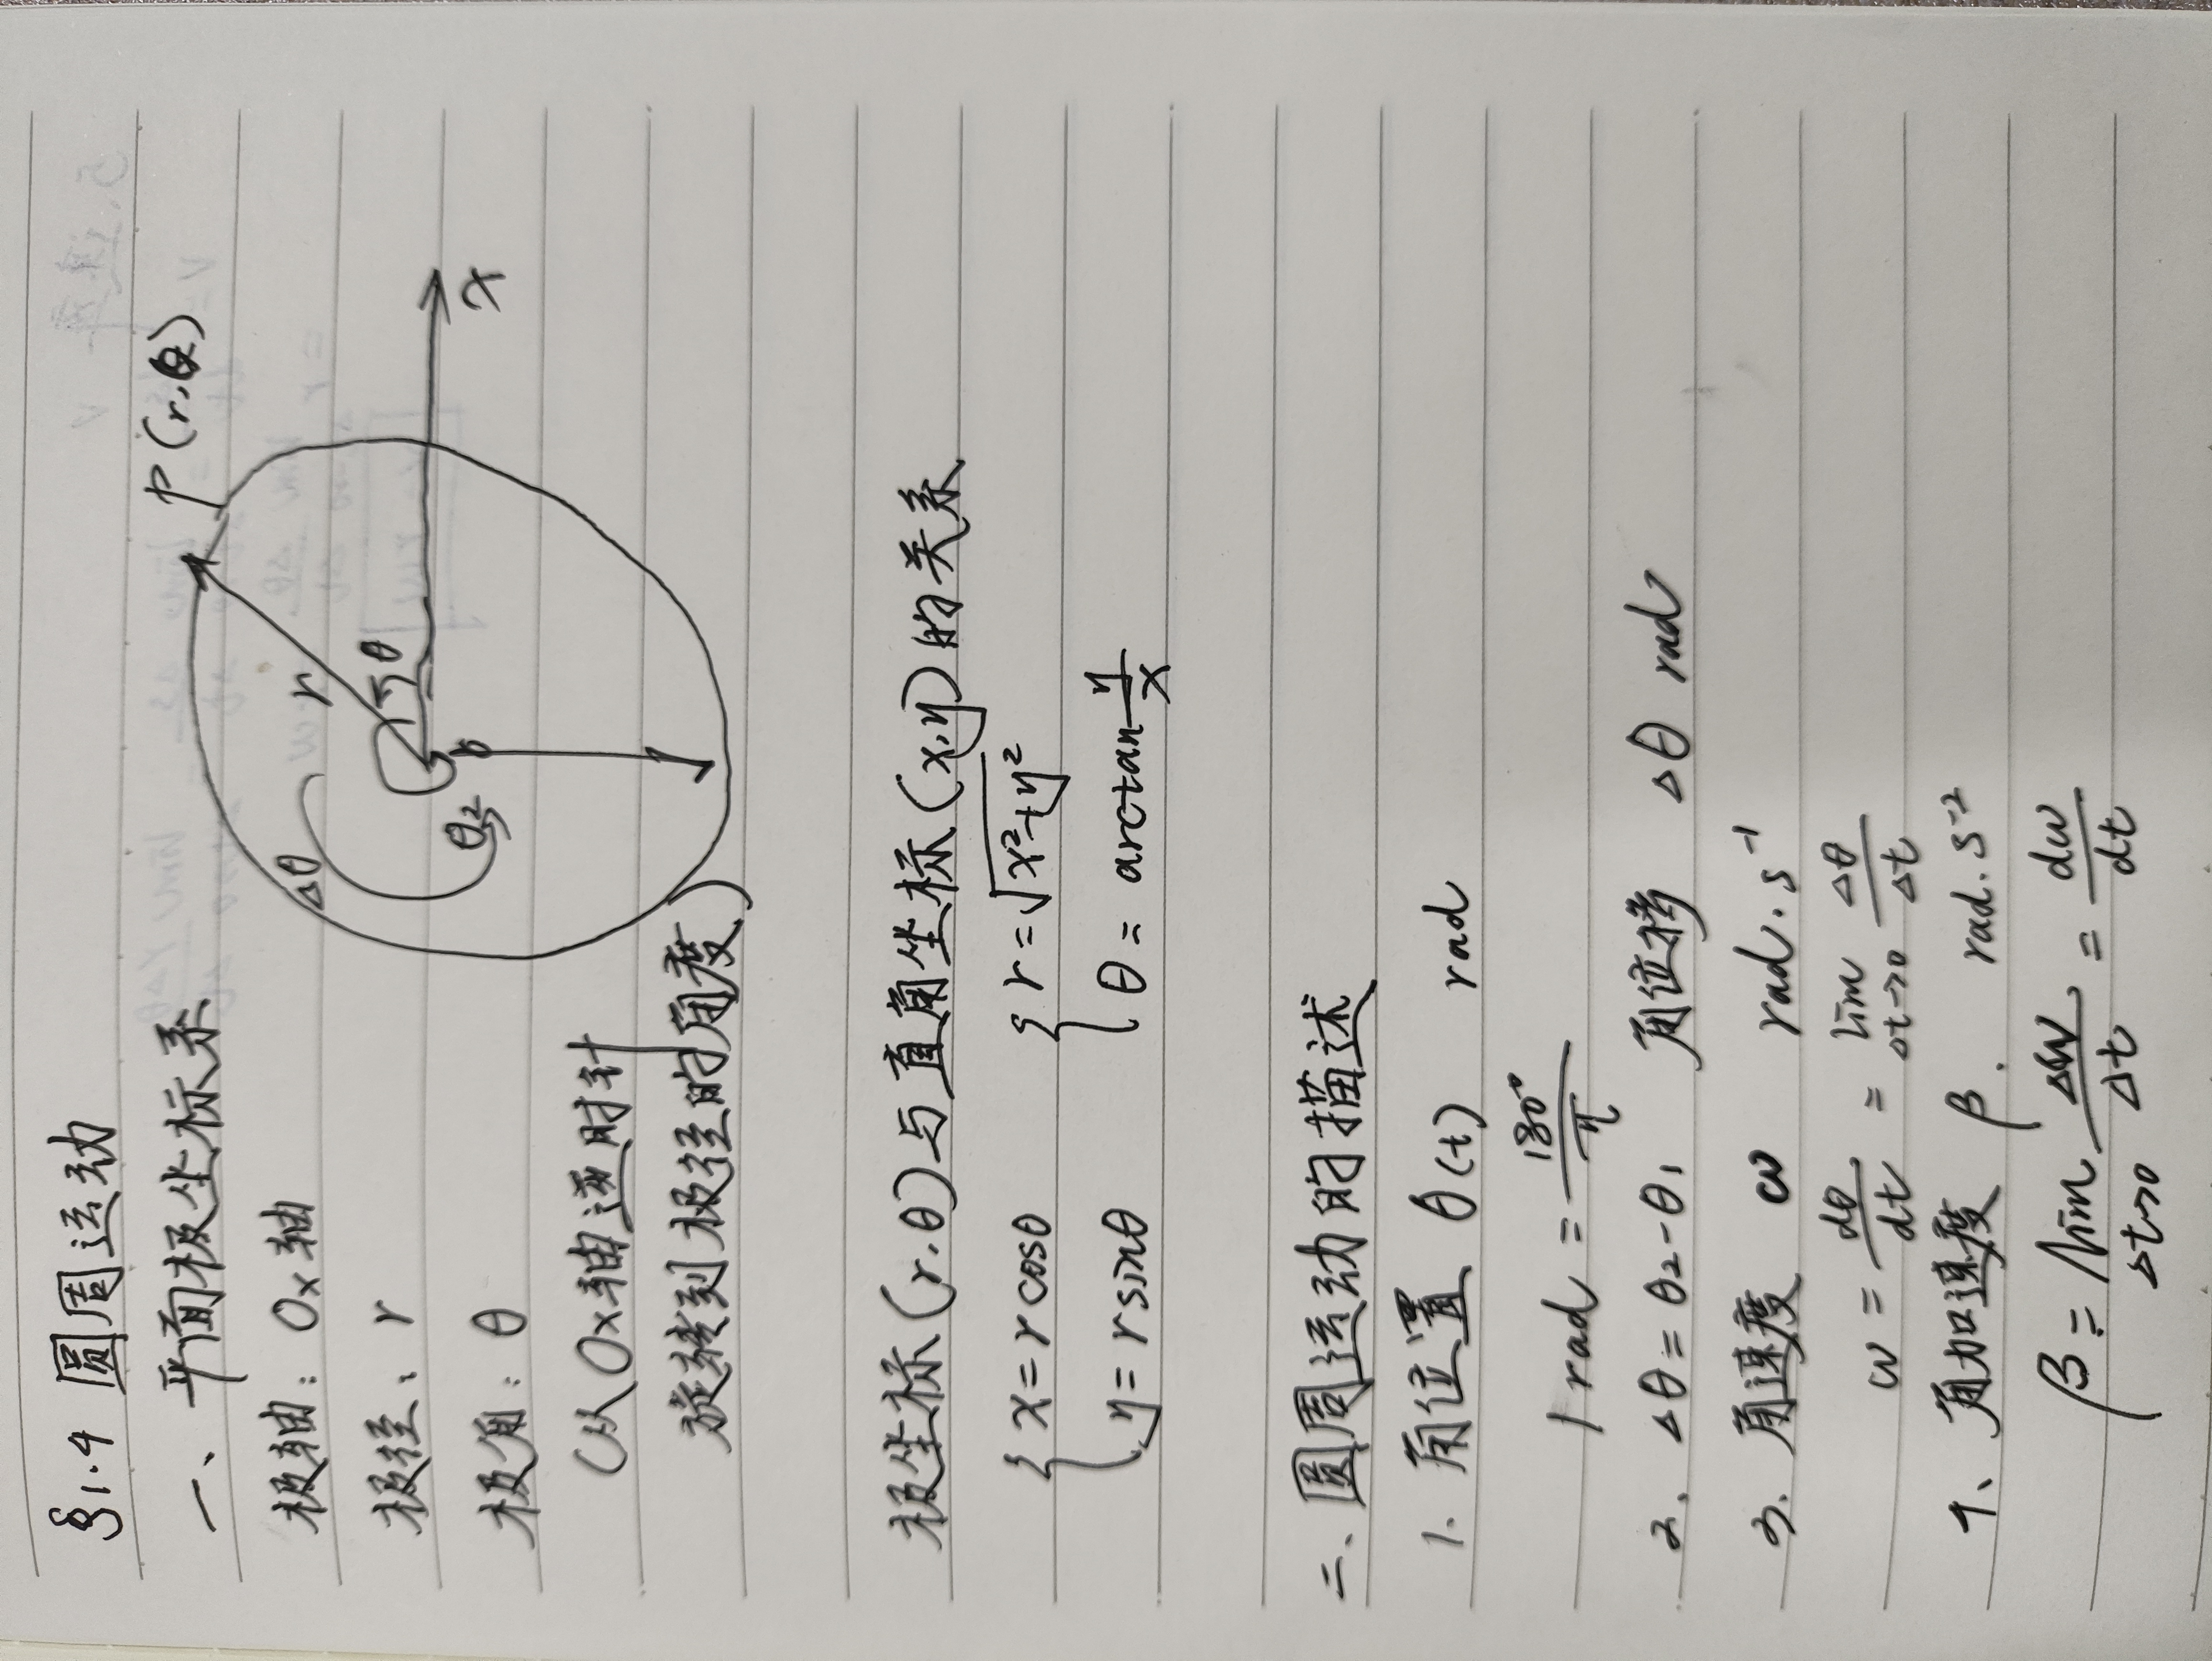 §1.4 圆周运动
一、平面极坐标系
极轴：Ox轴
极径：r
极角：θ
（从Ox轴逆时针
旋转到极径的角度）
P(r,θ)
Δθ
r
θ
θ₂
x
极坐标(r,θ)与直角坐标(x,y)的关系
{ x=r cosθ { r=√(x²+y²)
y=r sinθ θ= arctan y/x
二、圆周运动的描述
1. 角位置 θ(t) rad
1 rad = 180°/π
2. Δθ=θ₂-θ₁ 角位移 Δθ rad
3. 角速度 ω rad·s⁻¹
ω = dθ/dt = lim Δt→0 Δθ/Δt
4、角加速度 β. rad·s⁻²
β = lim Δt→0 Δω/Δt = dω/dt